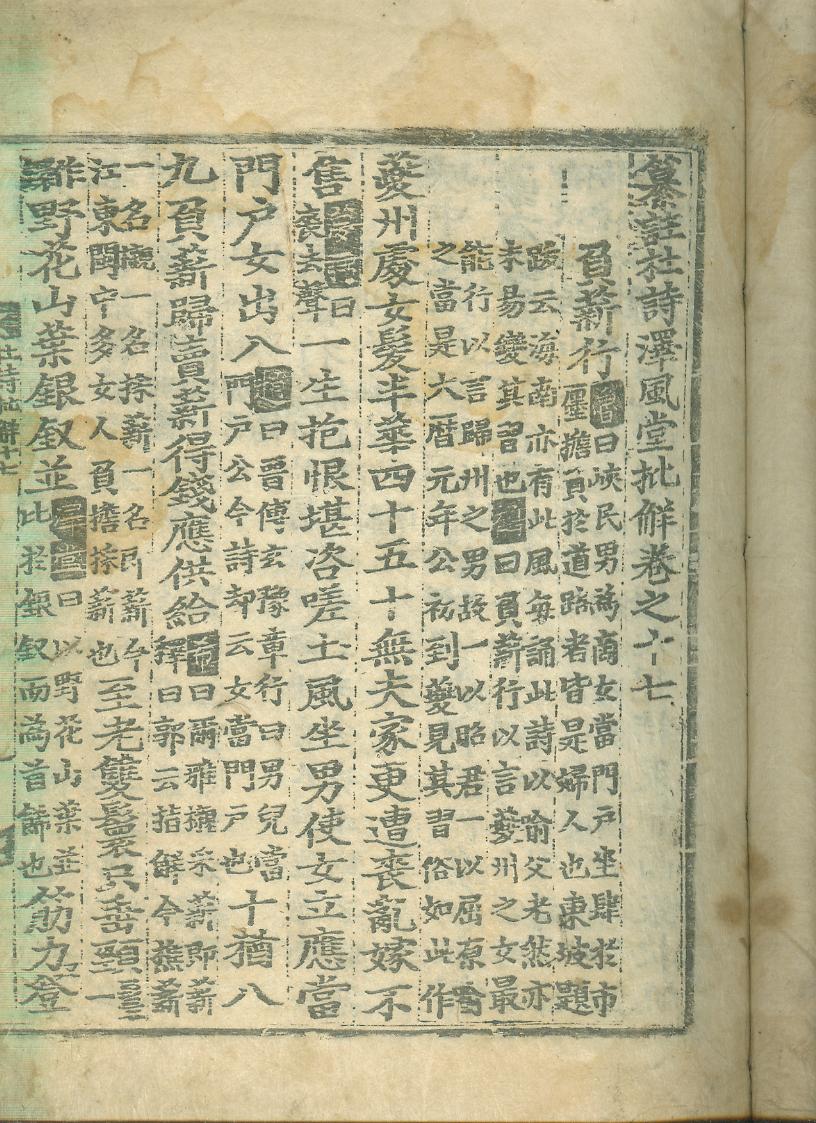 纂註杜詩澤風堂批解卷之十七
負薪行曰峽民男為商女當門戶坐肆於市
壓擔負於道路者皆是婦人也東坡題
跋云海南亦有此風每誦此詩以喻父老然亦
未易變其習也曰負薪行以言夔州之女最
能行以言歸州之男故一以昭君一以屈原
之當是大曆元年公初到夔見其習俗如此作
夔州處女髮半華四十五十無夫家更遭喪亂嫁不
售曰喪去聲一生抱恨堪咨嗟土風坐男使女立應當
門戶女出入曰晋傅玄豫章行曰男兒當
門戶公今詩却云女當門戶也十猶八
九負薪歸賣薪得錢應供給曰爾雅櫬采薪即薪
釋曰郭云指解今樵薪
一名櫬一名採薪一名即薪今
江東閩中多女人負擔採薪也至老雙鬟只垂頸
野花山葉銀釵並曰以野花山葉並
比於銀釵而為首飾也筋力登
杜詩批解十七